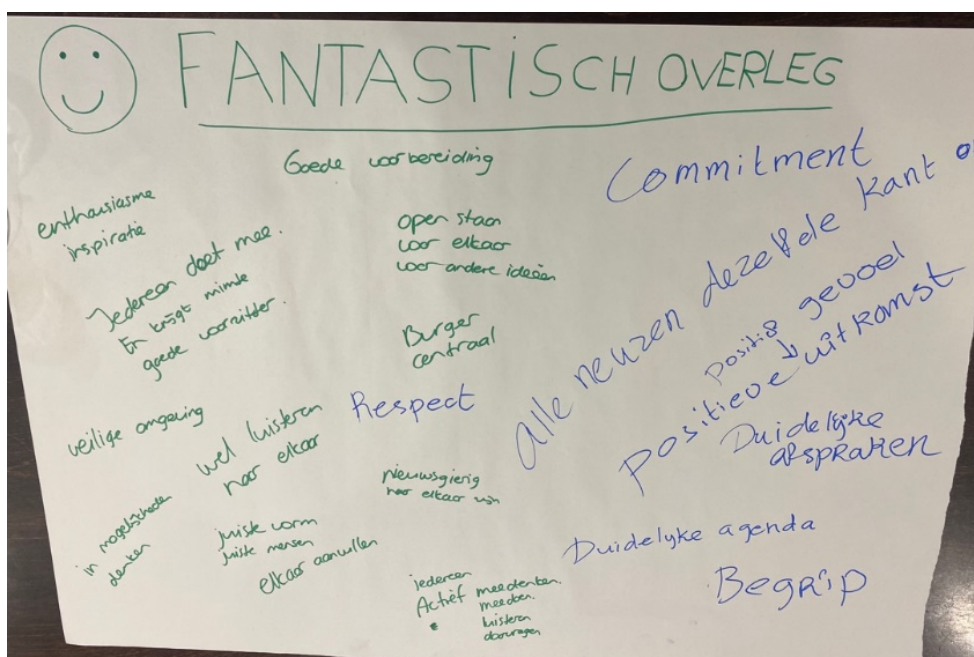 FANTASTISCH OVERLEG
Goede voorbereiding
enthousiasme
inspiratie
Iedereen doet mee.
En krijgt ruimte
goede voorzitter.
open staan
voor elkaar
voor andere ideeën
Burger
centraal
veilige omgeving
wel luisteren
naar elkaar
Respect
nieuwsgierig
naar elkaar zijn
in
mogelijkheden
denken
juiste vorm
juiste mensen
elkaar aanvullen
iedereen
Actief meedenken.
meedoen.
luisteren
doorvragen
Commitment
alle neuzen dezelfde kant o
positief gevoel
positieve uitkomst
Duidelyke
afspraken
Duidelyke agenda
Begrip